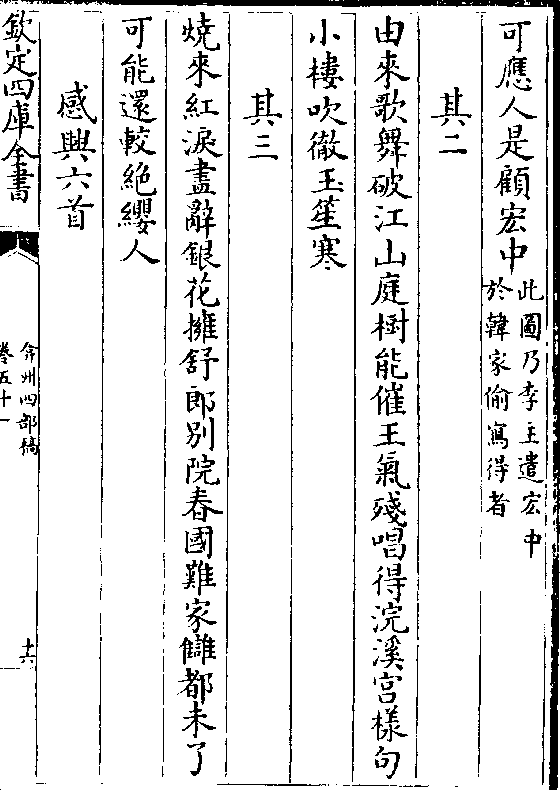 可應人是顧宏中此圖乃李主遣宏中
於韓家偷寫得者
其二
由來歌舞破江山庭樹能催王氣殘唱得浣溪宮樣句
小樓吹徹玉笙寒
其三
燒來紅淚盡辭銀花擁舒郎別院春國難家讎都未了
可能還較絕纓人
感興六首
欽定四庫全書
弇州四部稿
卷五十一
十六